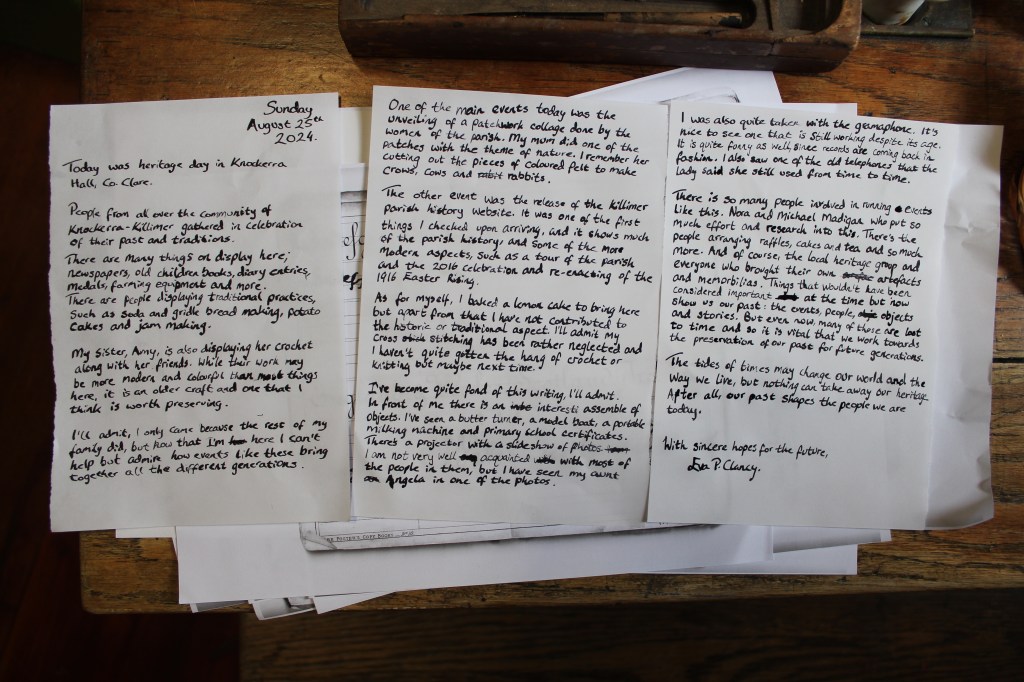 Sunday
August 25th
2024.
Today was heritage day in Knockerra
Hall, Co. Clare.
People from all over the community of
Knockerra-Killimer gathered in celebration
of their past and traditions.
There are many things on display here;
newspapers, old children books, diary entries,
medals, farming equpment and more.
There are people displaying traditional practices,
Such as soda and gridle bread making, potato
cakes and jam making.
My sister, Amy, is also displaying her crochet
along with her friends. While their work may
be more modern and colourful than most things
here, it is an older craft and one that I
think is worth preserving.
I'll admit, I only came because the rest of my
family did, but now that I'm here I can't
help but admire how events like these bring
together all the different generations.
One of the main events today was the
unveiling of a patchwork collage done by the
women of the parish. My mum did one of the
patches with the theme of nature. I remember her
cutting out the pieces of coloured felt to make
crows, cows and rabbits.
The other event was the release of the Killimer
parish history website. It was one of the first
things I checked upon arriving, and it shows much
of the parish history, and some of the more
modern aspects, such as a tour of the parish
and the 2016 celebration and re-enacting of the
1916 Easter Rising.
As for myself, I baked a lemon cake to bring here
but apart from that I have not contributed to
the historic or traditional aspect. I'll admit my
cross stitching has been rather neglected and
I haven't quite gotten the hang of crochet or
knitting but maybe next time.
I've become quite fond of this writing, I'll admit.
In front of me there is an interesti assemble of
objects. I've seen a butter turner, a model boat, a portable
milking machine and primary school certificates.
There's a projector with a slideshow of photos
I am not very well acquainted with most of
the people in them, but I have seen my aunt
Angela in one of the photos.
I was also quite taken with the gramaphone. It's
nice to see one that is still working despite its age.
It is quite funny as well, since records are coming back in
fashion. I also saw one of the old telephones that the
lady said she still used from time to time.
There is so many people involved in running events
like this. Nora and Michael Madigan who put so
much effort and research into this. There's the
people arranging raffles, cakes and tea and so much
more. And of course, the local heritage group and
everyone who brought their own artefacts
and memorbilias. Things that wouldn't have been
considered important at the time but now
show us our past: the events, people, objects
and stories. But even now, many of those are lost
to time and so it is vital that we work towards
the preservation of our past for future generations.
The tides of times may change our world and the
way we live, but nothing can take away our heritage.
After all, our past shapes the people we are
today.
With sincere hopes for the future,
P. Clancy.